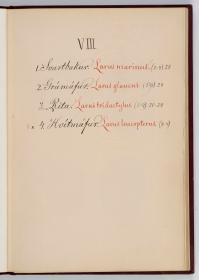 VIII.
1. Svartbakur. Larus marinus.
2. Grámáfur. Larus glaucus.
3. Rita. Larus tridactylus
4. Hvítmáfur. Larus leucopterus.